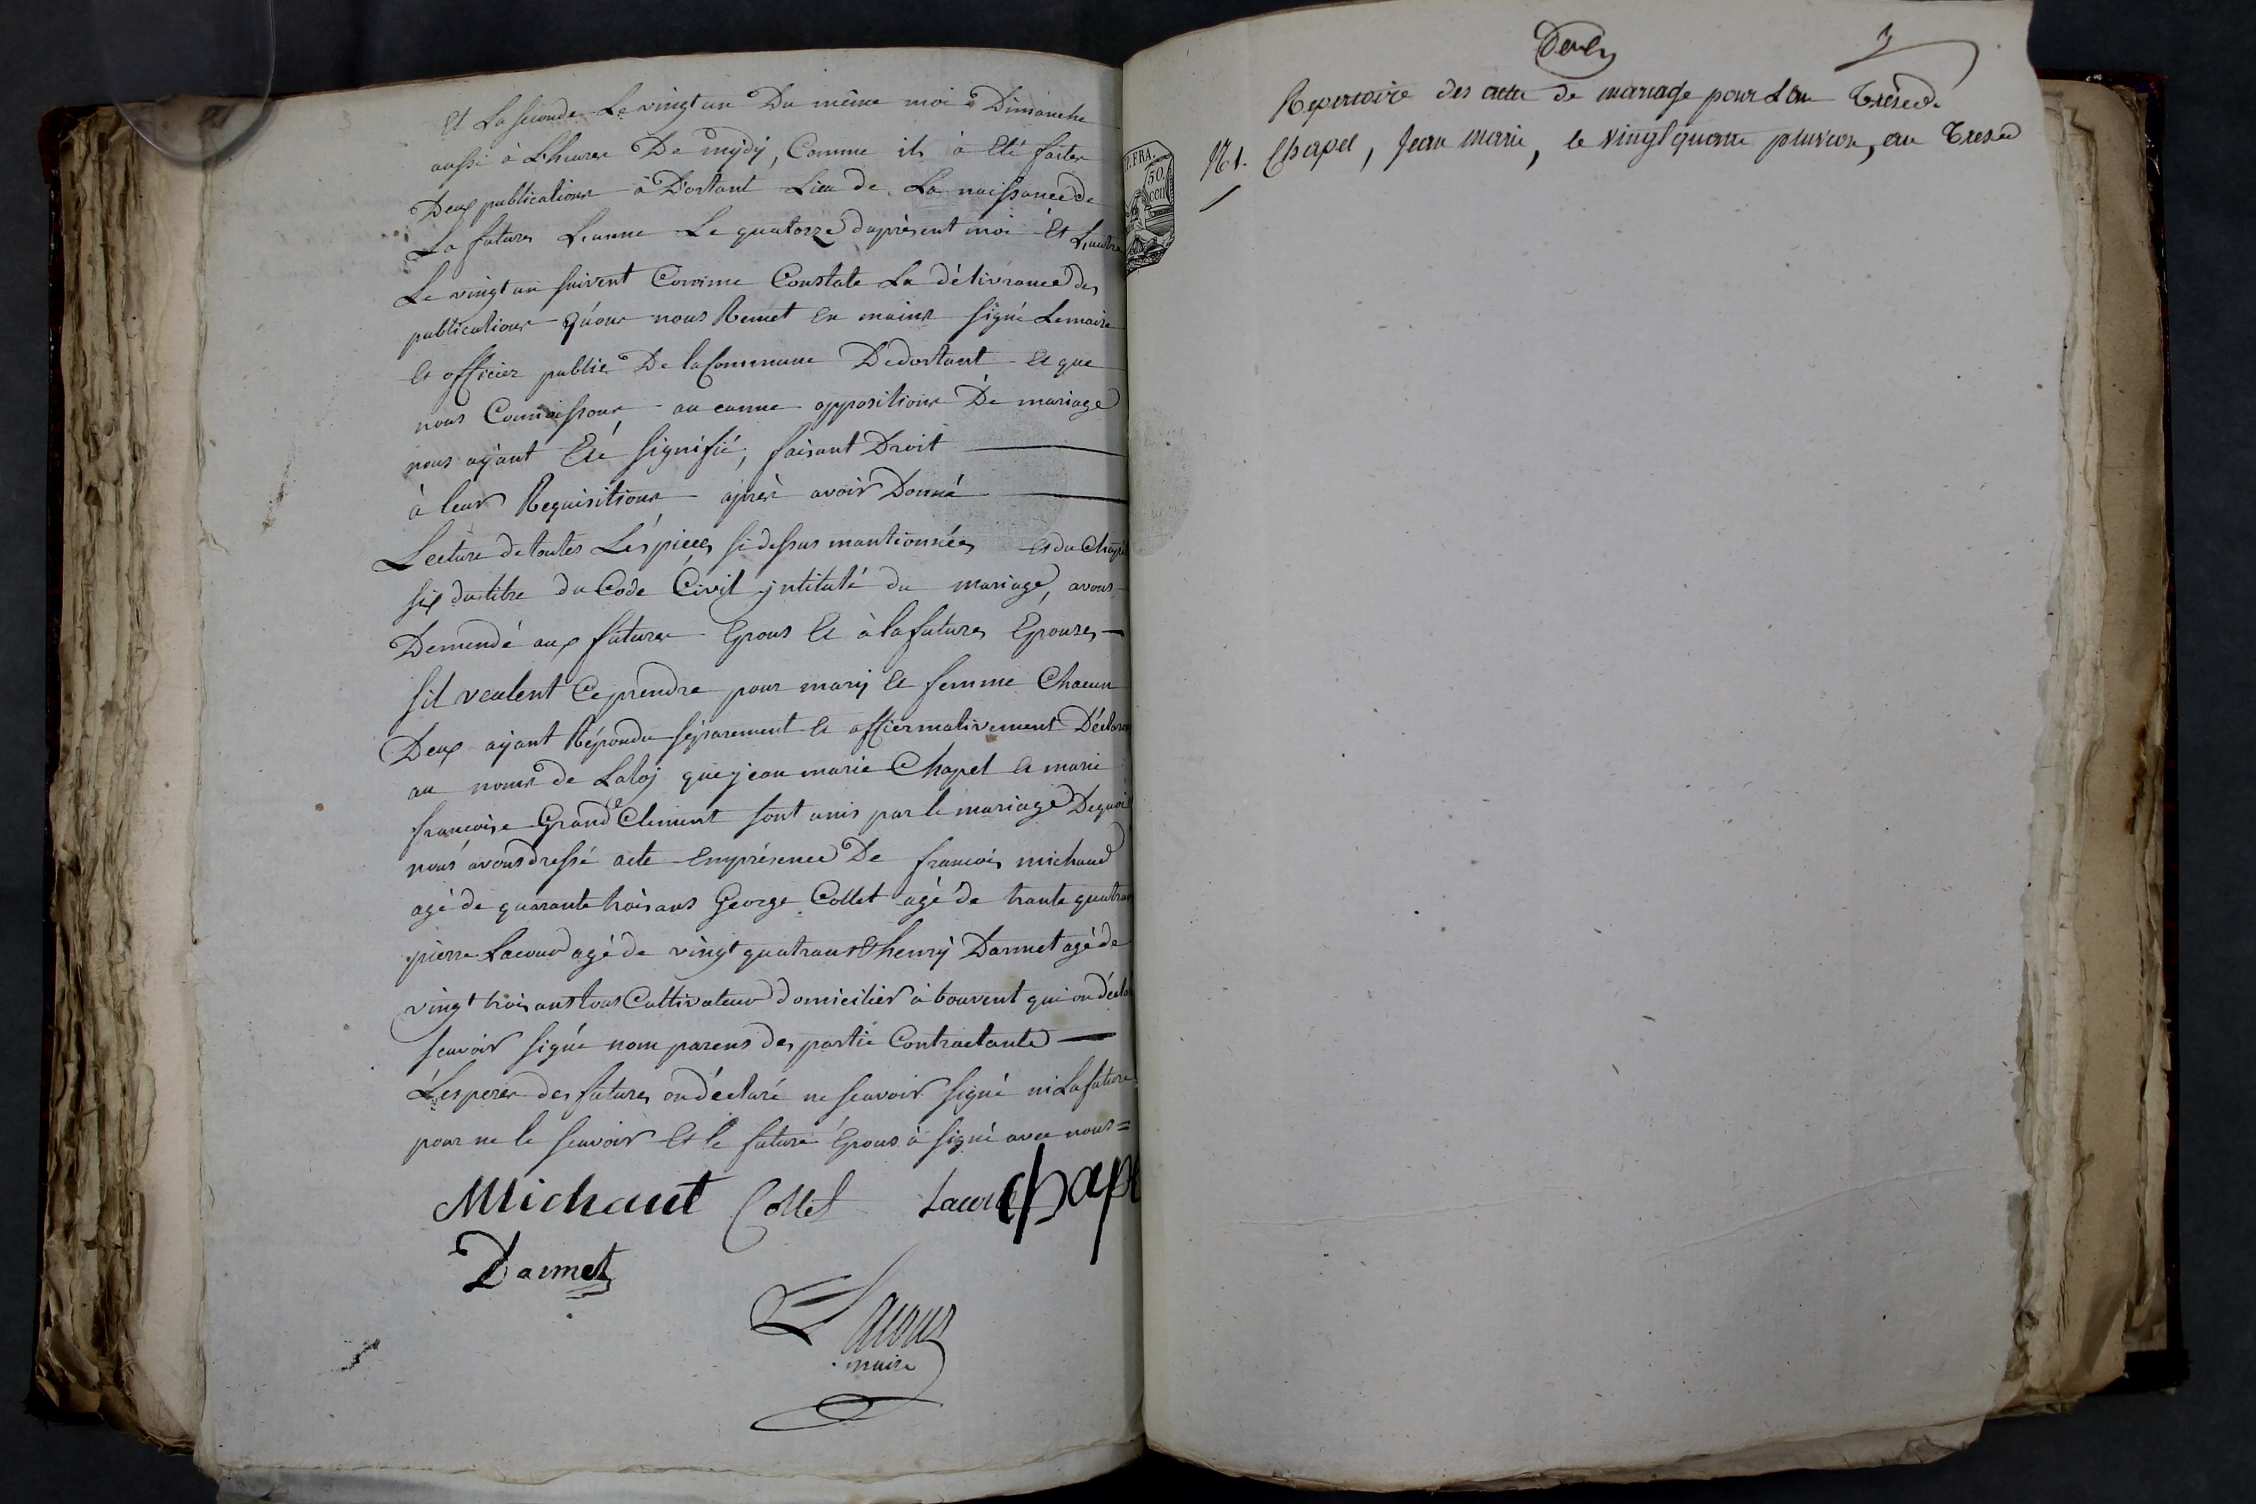 Et La seconde Le vingt un Du même moi à Dimanche
aussi à L'heure De mydÿ, Comme ils à Eté faites
Deux publications à D'ortant Lieu de La naissance de
La future L'eunne Le quatorze duprèsent moi Et L'autre
Le vingt un suivent Comme Constate La délivrance des
publications nous Remet En mains signé Lemaire
Et officier public De la Commune Dedortant Et que
nous Connoissons aucunne oppositions De mariage
nous aÿant Eté signifié, faisant Droit
à leur Requisitions aprèr avoir Donné
Lecture detoutes Lés pieces si dessus mantionnées et du Chap
six du titre du Code Civil jntitulé du mariage, avons
Demendé aux futures Epous Et à la futures Epouses
sil veulent Ce prendre pour marÿ Et femme Chacun
Deux aÿant Répondu séparement Et affiermativement Déclaron
au noms de Laloj que jean marie Chapel Et marie
francoise Grand Clement sont unis par le mariage Dequoi
nous avons dressé acte Emprésence De francois michaud
agé de quarante trois ans George Collet agé de trante quatrans
pierre Lacour agé de vingt quatrans Et henrÿ Darmet agé de
vingt trois ans tous Cultivateur domicilier à bouvent qui on décla
scavoir signé nom parens des partie Contractante
Lespères des futures on déclaré ne scavoir signé ni La future
pour ne le scavoir Et le future Epous à signé avec nous =
Michaut Collet Lacour Chape
Darmet
Lacour
maire
3
Repertoire des actes de mariage pour L'an treize
P.FRA.
50.
cen
N.1. Chapel, Jean Marie, le vingt quatre pluviose, an treize